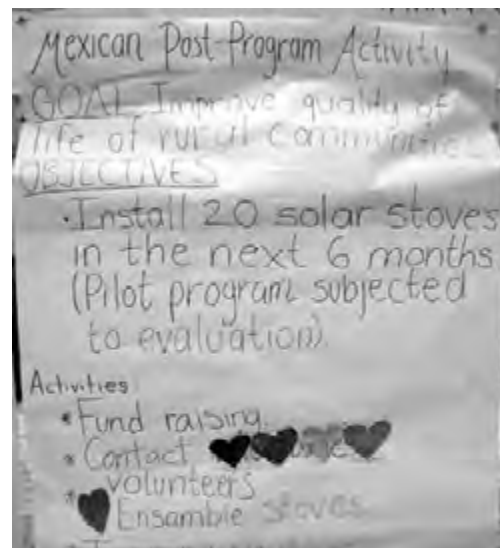 Mexican Post-Program Activity
GOAL Improve quality of
life of rural communities
OBJECTIVES
·Install 20 solar stoves
in the next 6 months
(Pilot program subjected
to evaluation).
Activities
*Fund raising.
*Contact
* volunteers
Ensamble stoves